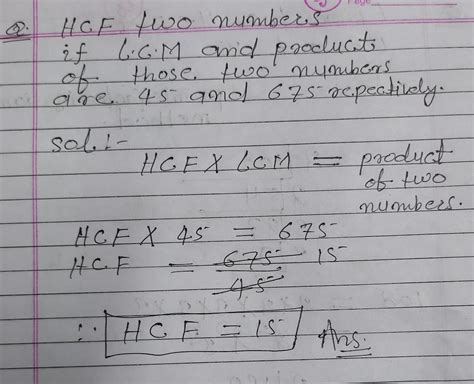 Q. HCF two numbers
if L.C.M and products
of those two numbers
are 45 and 675 repectively.
sol:-
HCF X LCM = product
of two
numbers.
HCF X 45 = 675
HCF = 675 15
45
∵ HCF = 15 Ans.